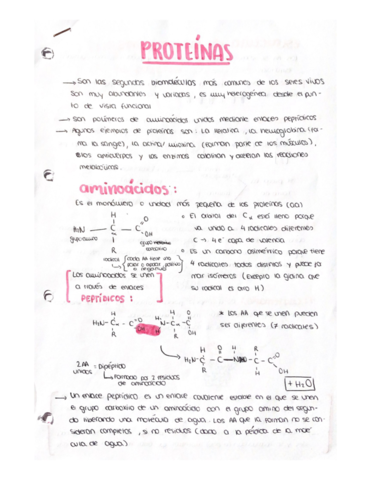 PROTEÍNAS
→ Son las segundas biomoléculas más comunes de los seres vivos
Son muy abundantes y variadas, es muy heterogénea desde el pun-
to de vista funcional
→ Son polímeros de aminoácidos unidos mediante enlaces peptídicos
→ Algunos ejemplos de proteínas son: La keratina, la hemoglobina (for
ma la sangre), la actina/miosina (forman parte de los músculos),
los anticuerpos y las enzimas catalizan y aceleran las reacciones
metabólicas.
aminoácidos:
Es el monómero o unidad más pequeña de las proteínas (aa)
H
H₂N — C — C
O
OH
R
grupo amino
grupo
carboxilo
radical
o El central del Cα está lleno porque
va unido a 4 radicales diferentes
C → 4 e⁻ capa de valencia
o Es un carbono asimétrico porque tiene
4 radicales todos distintos y puede for
mar isómeros (Excepto la glicina que
su radical es otro H)
Los aminoácidos se unen
a través de enlaces
PEPTÍDICOS:
H O H O
H₂N - C - C OH, H N - C - C
R R OH
* los AA que se unen pueden
ser diferentes (≠ radicales)
H O R O
H₂N - C - C - N - C - C
R H OH
+ H₂O
2 AA = Dipéptido
unidos
↳ formado por 2 residuos
de aminoácido
→ Un enlace peptídico es un enlace covalente estable en el que se unen
el grupo carboxilo de un aminoácido con el grupo amino del segun-
do liberando una molécula de agua. Los AA que la forman no se con-
sideran completos, si no residuos (dado a la pérdida de la molé
cula de agua).